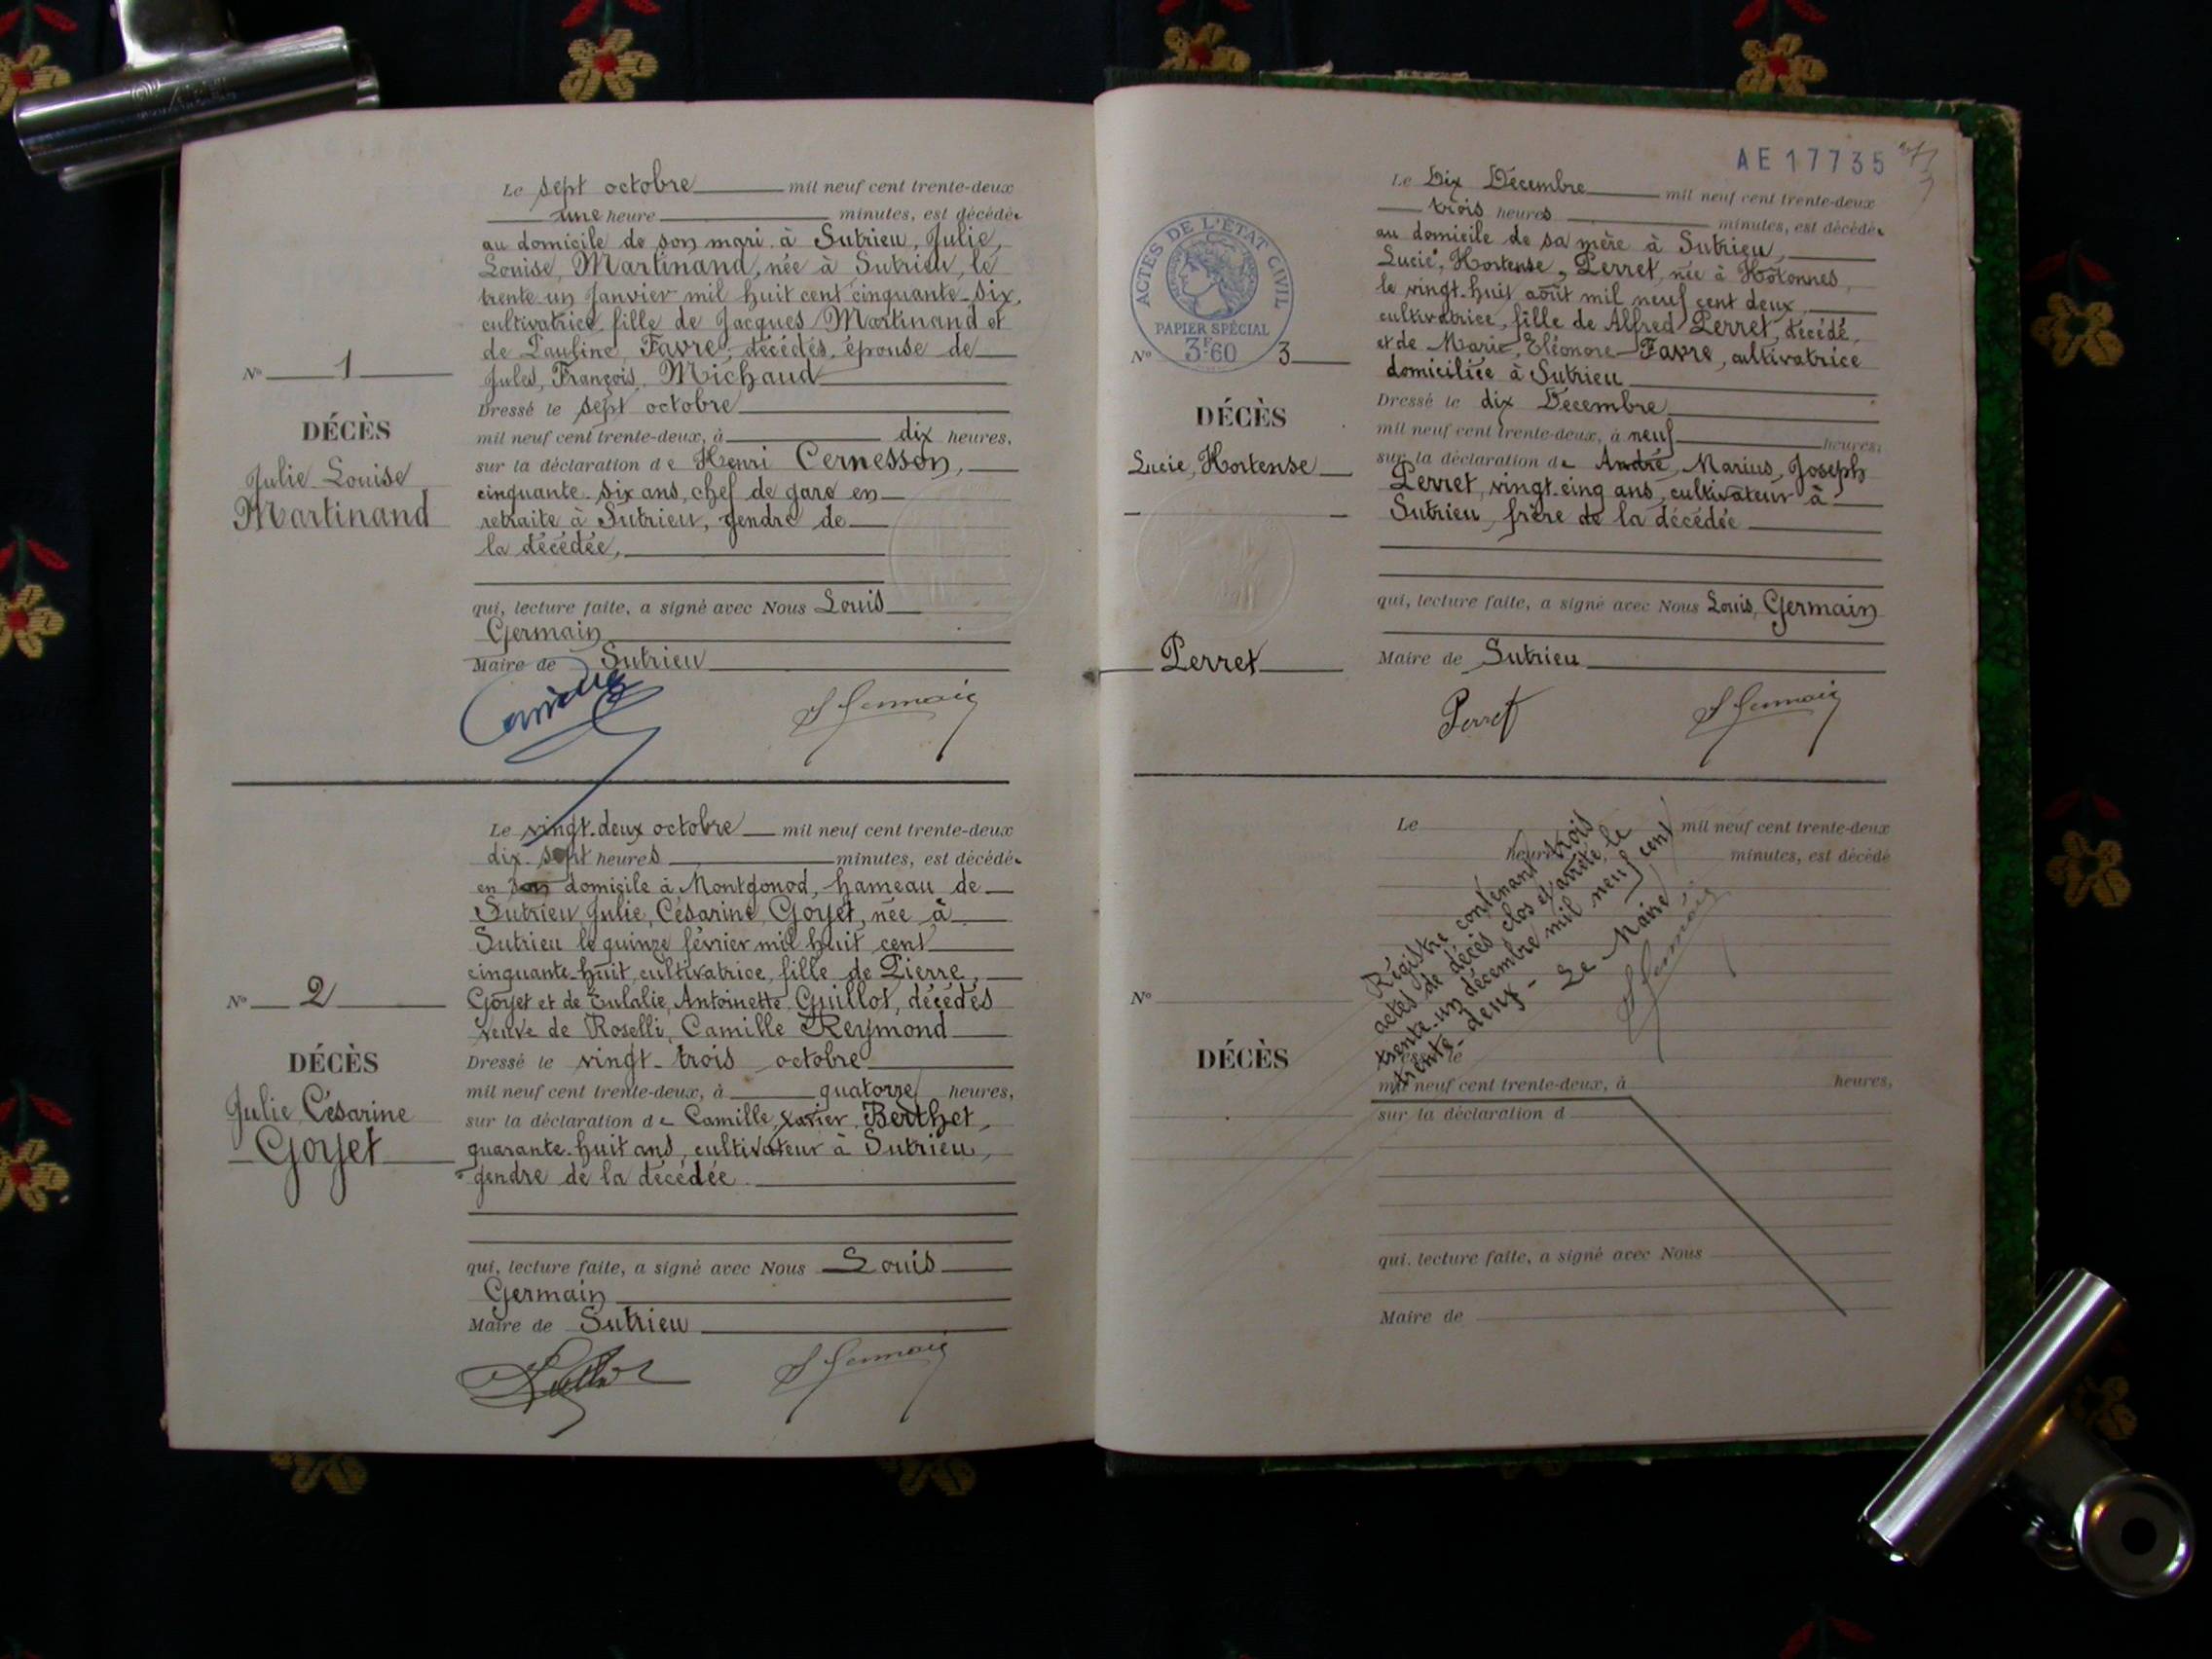 Le sept octobre mil neuf cent trente-deux
une heure minutes, est décédée
au domicile de son mari à Sutrieu, Julie,
Louise, Martinand, née à Sutrieu, le
trente-un Janvier mil huit cent cinquante-six,
cultivatrice, fille de Jacques Martinand et
de Pauline, Favre, décédés, épouse de
Jules, François, Michaud
Nº 1
DÉCÈS
Julie Louise
Martinand
Dressé le sept octobre
mil neuf cent trente-deux, à dix heures,
sur la déclaration de Henri Cernesson,
cinquante-six ans, chef de gare en
retraite à Sutrieu, gendre de
la décédée,
qui, lecture faite, a signé avec Nous Louis
Germain
Maire de Sutrieu
L Germain
Le vingt-deux octobre mil neuf cent trente-deux
dix-sept heures minutes, est décédée
en son domicile à Montgonod, hameau de
Sutrieu Julie, Césarine, Goyet, née à
Sutrieu le quinze février mil huit cent
cinquante-huit, cultivatrice, fille de Pierre,
Goyet et de Eulalie, Antoinette Guillot, décédés
veuve de Roselli, Camille Reymond
Nº 2
DÉCÈS
Julie Césarine
Goyet
Dressé le vingt-trois octobre
mil neuf cent trente-deux, à quatorze heures,
sur la déclaration de Camille, Xavier, Berthet,
quarante-huit ans, cultivateur à Sutrieu,
gendre de la décédée
qui, lecture faite, a signé avec Nous Louis
Germain
Maire de Sutrieu
L Germain
AE17735
ACTES DE L'ÉTAT CIVIL
PAPIER SPÉCIAL
3F60
Le Dix Décembre mil neuf cent trente-deux
trois heures minutes, est décédée
au domicile de sa mère à Sutrieu,
Lucie, Hortense, Perret, née à Hotonnes,
le vingt-huit août mil neuf cent deux,
cultivatrice, fille de Alfred Perret, décédé,
et de Marie, Eléonore Favre, cultivatrice
domiciliée à Sutrieu
Nº 3
DÉCÈS
Lucie, Hortense
Perret
Dressé le dix Décembre
mil neuf cent trente-deux, à neuf heures,
sur la déclaration de André, Marius, Joseph
Perret, vingt-cinq ans, cultivateur à
Sutrieu, frère de la décédée
qui, lecture faite, a signé avec Nous Louis, Germain
Maire de Sutrieu
Perret
L Germain
Le mil neuf cent trente-deux
heure minutes, est décédé
Nº
DÉCÈS
Régistre contenant trois
actes de décès clos et arrêté le
trente-un décembre mil neuf cent
trente-deux - Le Maire
L Germain
Dressé le
mil neuf cent trente-deux, à heures,
sur la déclaration d
qui, lecture faite, a signé avec Nous
Maire de